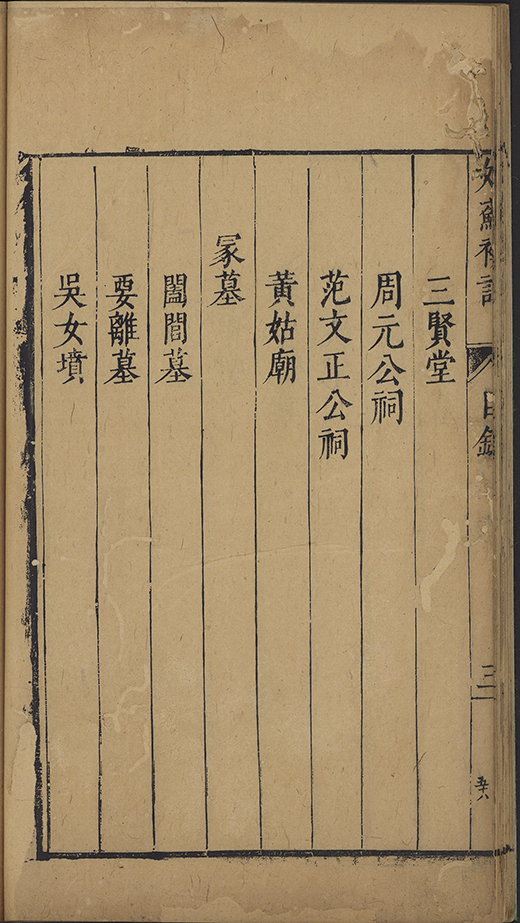 三賢堂
周元公祠
范文正公祠
黃姑廟
冢墓
闔閭墓
要離墓
吳女墳
目錄
三